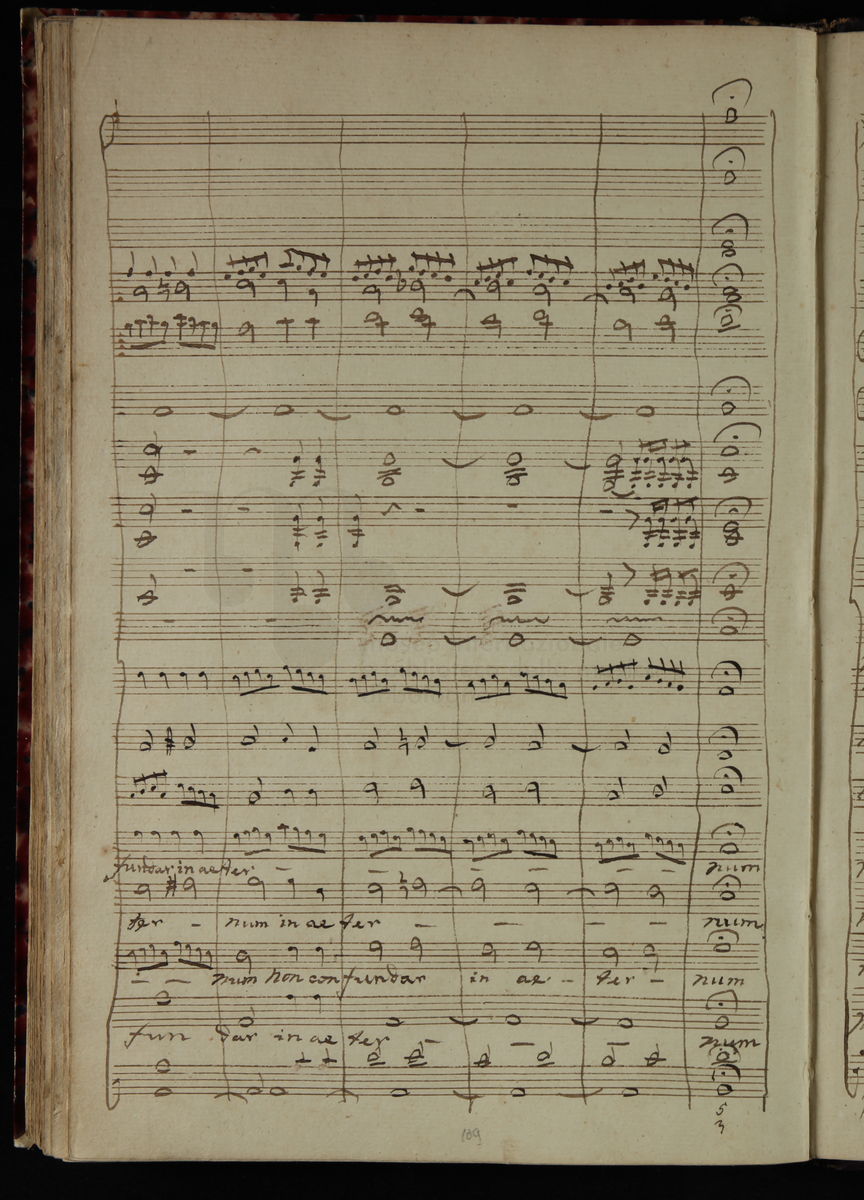 fundar in aeter - - - - num
ter - num in ae ter - - - - num
- - num non confundar in ae - ter - num
fun dar in ae ter - - - num
5
3
109